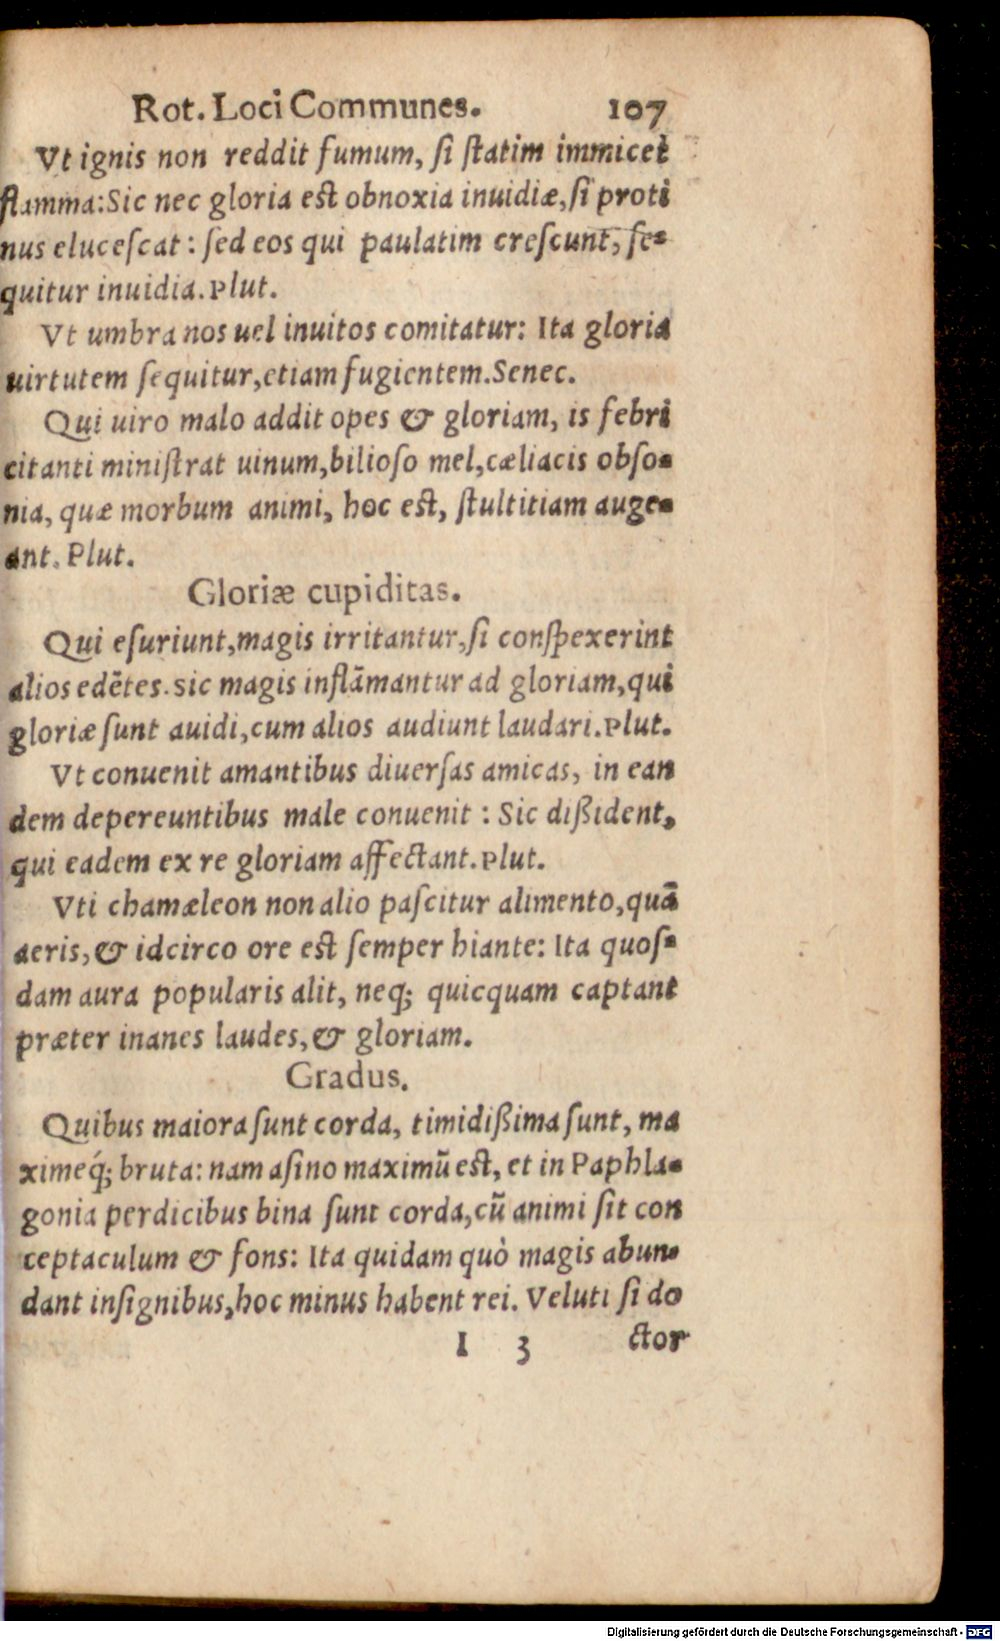 Rot. Loci Communes. 107
Vt ignis non reddit fumum, ſi ſtatim immicet
flamma: Sic nec gloria eſt obnoxia inuidiæ, ſi proti
nus eluceſcat : ſed eos qui paulatim creſcunt, ſe-
quitur inuidia. Plut.
Vt umbra nos uel inuitos comitatur: Ita gloria
uirtutem ſequitur, etiam fugientem. Senec.
Qui uiro malo addit opes & gloriam, is febri
citanti miniſtrat uinum, bilioſo mel, cæliacis obſo-
nia, quæ morbum animi, hoc eſt, ſtultitiam auge-
ant. Plut.
Gloriæ cupiditas.
Qui eſuriunt, magis irritantur, ſi conſpexerint
alios edẽtes. Sic magis inflãmantur ad gloriam, qui
gloriæ ſunt auidi, cum alios audiunt laudari. Plut.
Vt conuenit amantibus diuerſas amicas, in ean
dem depereuntibus male conuenit : Sic dißident,
qui eadem ex re gloriam affectant. Plut.
Vti chamæleon non alio paſcitur alimento, quã
aeris, & idcirco ore eſt ſemper hiante: Ita quoſ-
dam aura popularis alit, neq; quicquam captant
præter inanes laudes, & gloriam.
Gradus.
Quibus maiora ſunt corda, timidißima ſunt, ma
ximeq́; bruta: nam aſino maximũ eſt, et in Paphla-
gonia perdicibus bina ſunt corda, cũ animi ſit con
ceptaculum & fons: Ita quidam quò magis abun-
dant inſignibus, hoc minus habent rei. Veluti ſi do
I 3 ctor
Digitalisierung gefördert durch die Deutsche Forschungsgemeinschaft - DFG